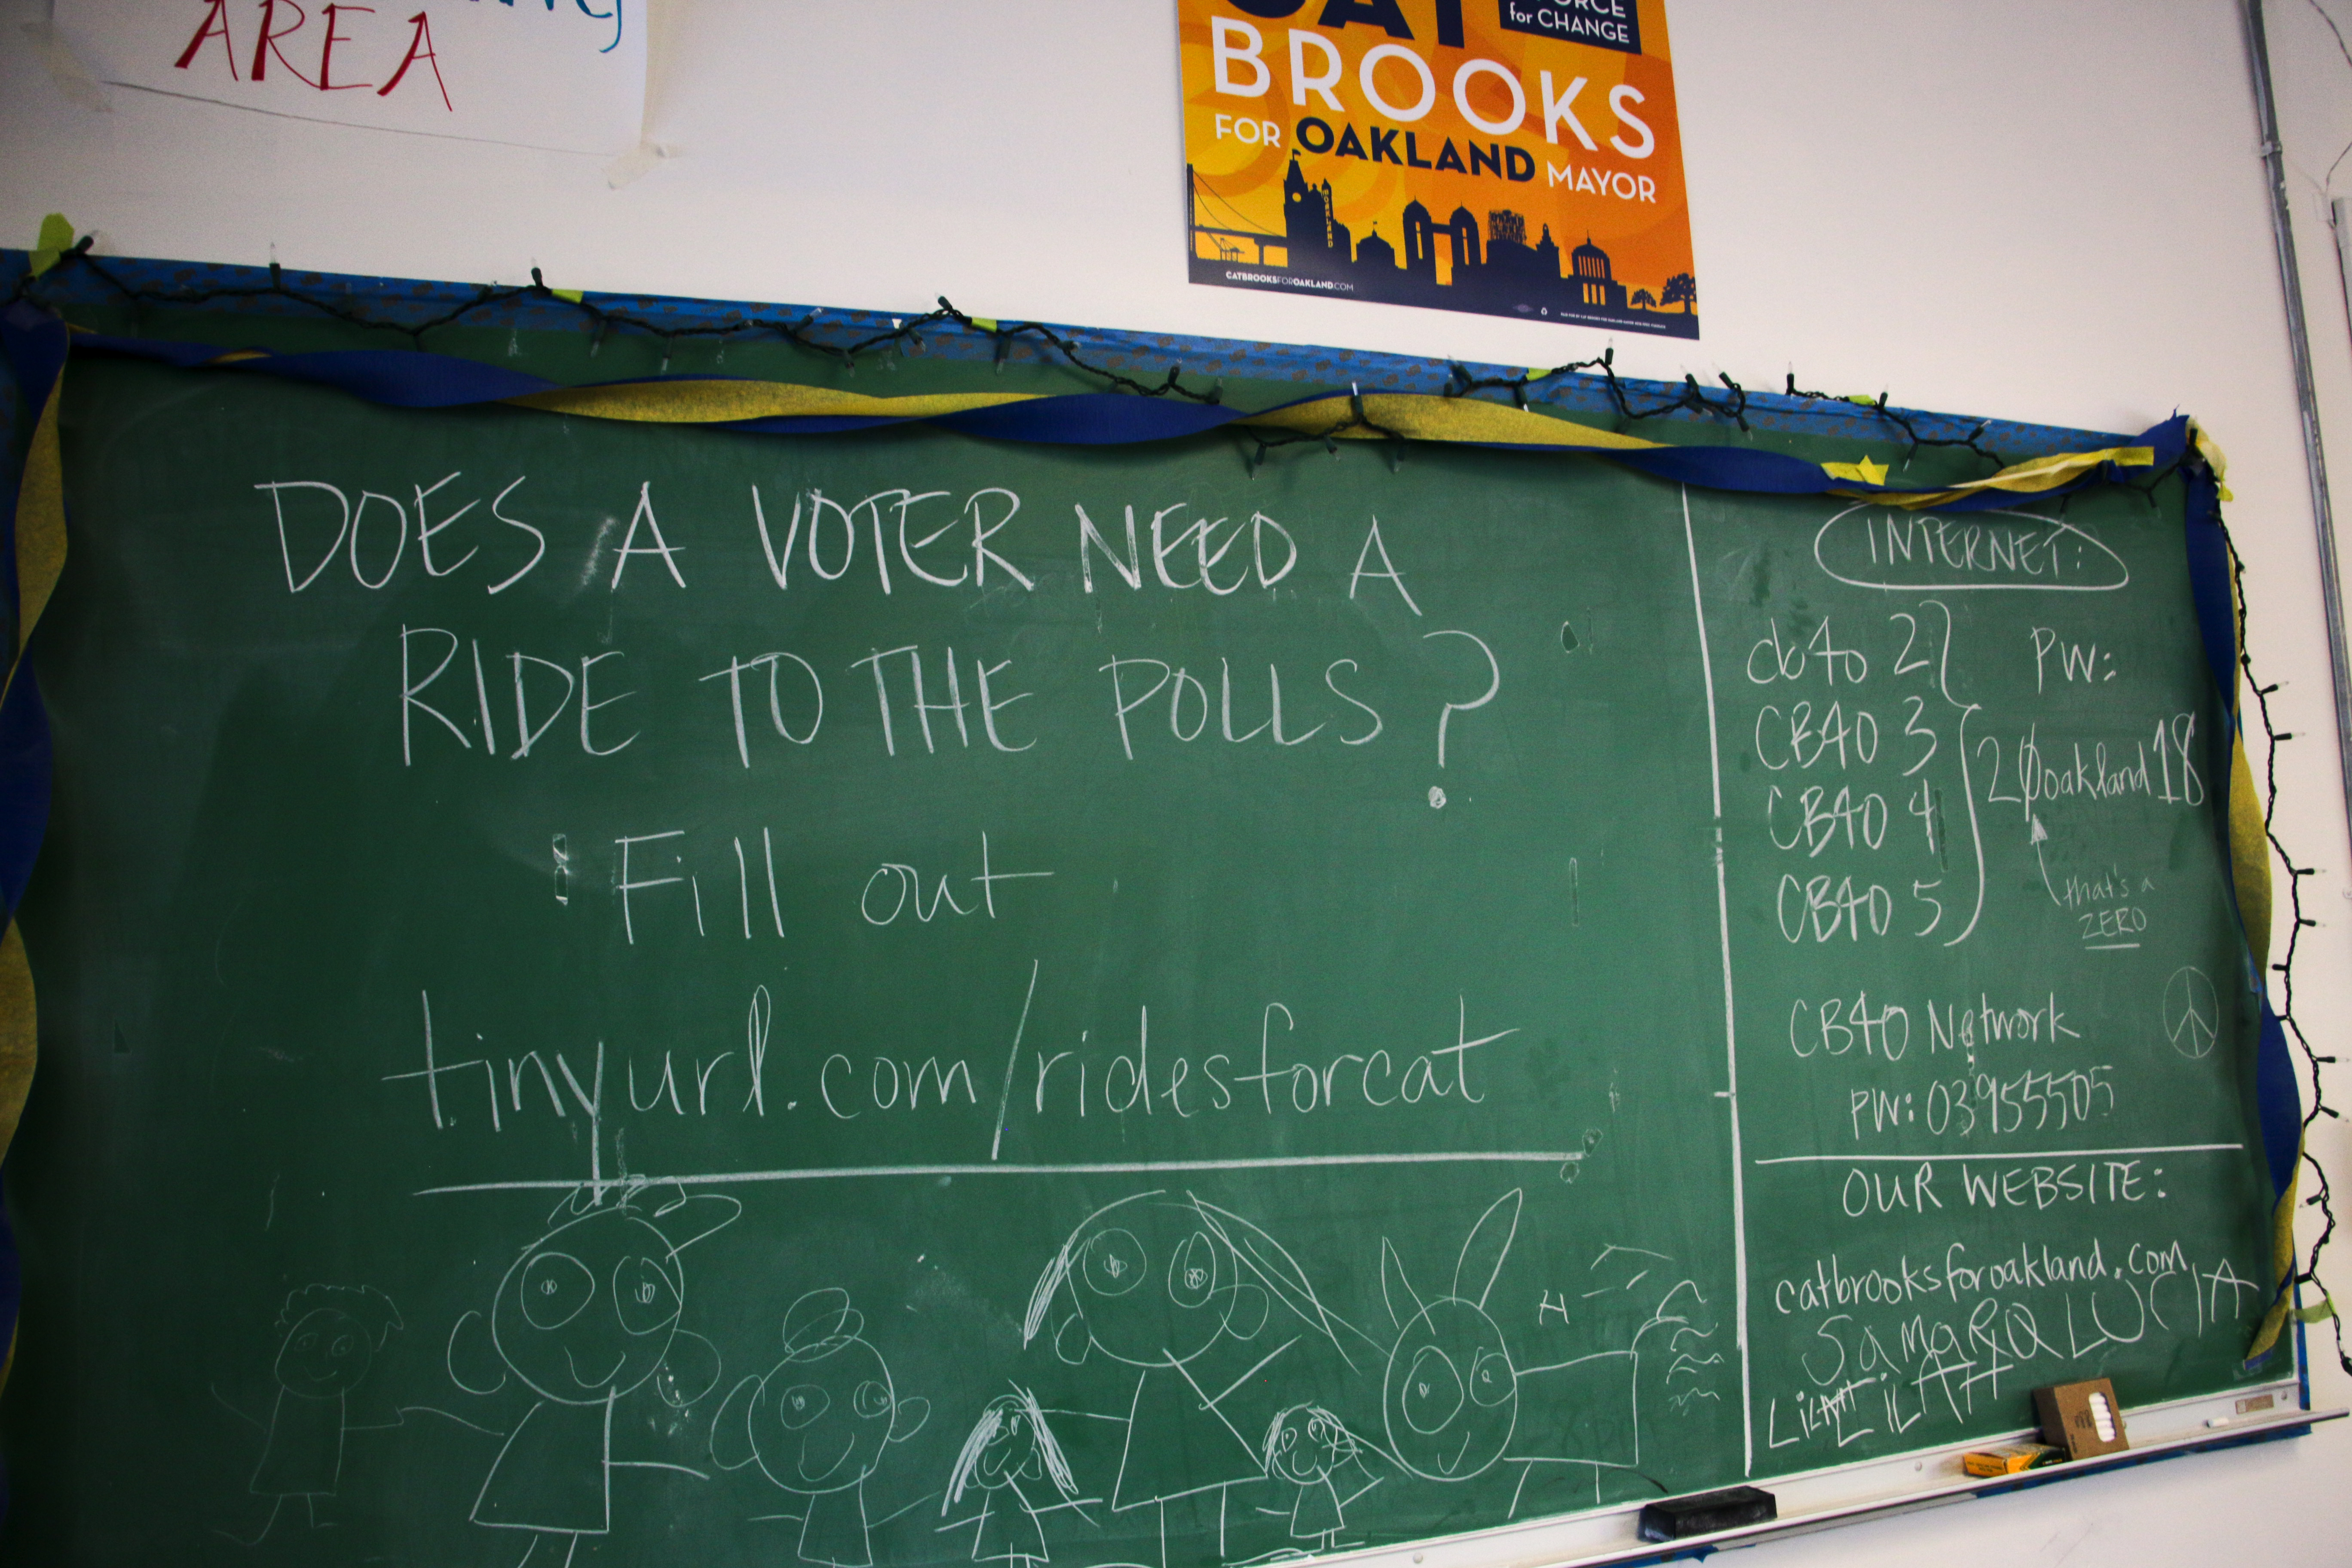 AREA
CAT
FORCE
for CHANGE
BROOKS
FOR OAKLAND MAYOR
OAKLAND
CATBROOKSFOROAKLAND.COM
DOES A VOTER NEED A
RIDE TO THE POLLS?
Fill out
tinyurl.com/ridesforcat
INTERNET:
cb4o 2
CB4O 3
CB4O 4
CB4O 5
PW:
20oakland18
that's a
ZERO
CB4O Network
PW: 03955505
OUR WEBSITE:
catbrooksforoakland.com
LUCIA